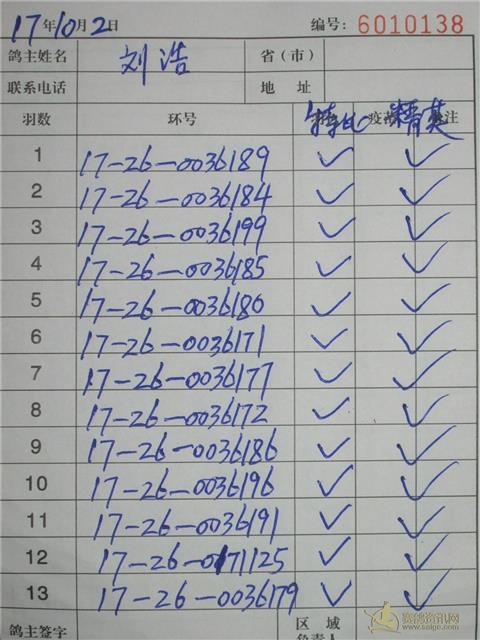 17年10月2日 编号: 6010138
鸽主姓名 刘浩 省(市)
联系电话 地址
羽数 环号 特比 疫苗 精英 备注
1 17-26-0036189 ✓ ✓
2 17-26-0036184 ✓ ✓
3 17-26-0036199 ✓ ✓
4 17-26-0036185 ✓ ✓
5 17-26-0036180 ✓ ✓
6 17-26-0036171 ✓ ✓
7 17-26-0036177 ✓ ✓
8 17-26-0036172 ✓ ✓
9 17-26-0036186 ✓ ✓
10 17-26-0036196 ✓ ✓
11 17-26-0036191 ✓ ✓
12 17-26-0171125 ✓ ✓
13 17-26-0036179 ✓ ✓
鸽主签字 区域
负责人
赛鸽资讯网
www.saige.com